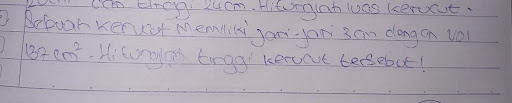 dan tinggi 24cm. Hitunglah luas kerucut.
Sebuah kerucut memiliki jari-jari 3cm dengan vol
132 cm². Hitunglah tinggi kerucut tersebut!